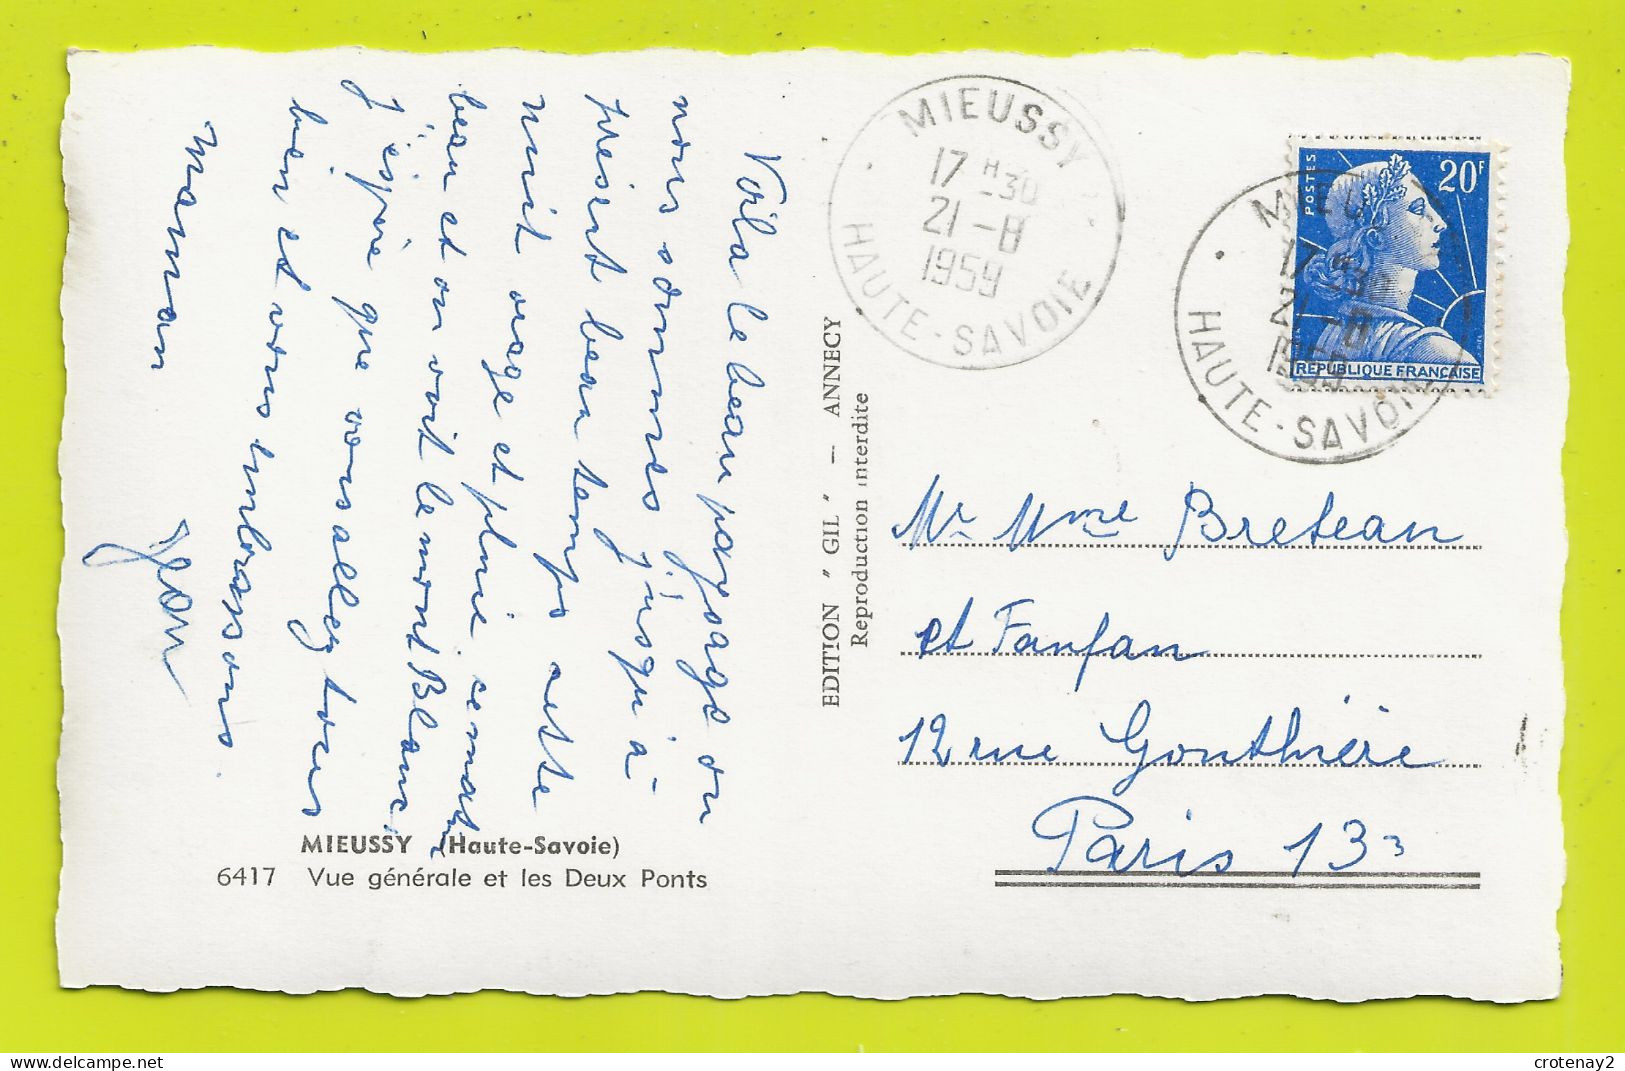 Voila le beau paysage ou
nous sommes jusqu'à
présent beau temps cette
nuit orage et pluie, ce matin
beau et on voit le mont Blanc
j'éspère que vous allez tous
bien et vous embrassons.
Maman Jean
MIEUSSY (Haute-Savoie)
6417 Vue générale et les Deux Ponts
EDITION "GIL" - ANNECY
Reproduction interdite
MIEUSSY
17 H 30
21 - 8
1959
HAUTE-SAVOIE
POSTES
20F
REPUBLIQUE FRANCAISE
MIEU
17 H 30
21 - 8
1959
HAUTE-SAVOIE
Mr Mme Breteau
et Fanfan
12 rue Gonthière
Paris 13
crotenay2